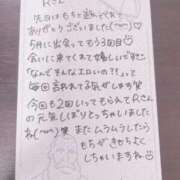 Rさん
先日はもちと遊んでくれて
ありがとうございました(^^)♡
5月に出会ってもう3回目♡
会いに来てくれて嬉しいです!
「なんでそんなエロいの!?」って
毎回言われてる気がします笑
今回も2回いってもらえてRさん
の元気しぼりとっちゃいました
ね(^^)♡ またムラムラしたら
もちがきもちよく
しちゃいますね♡